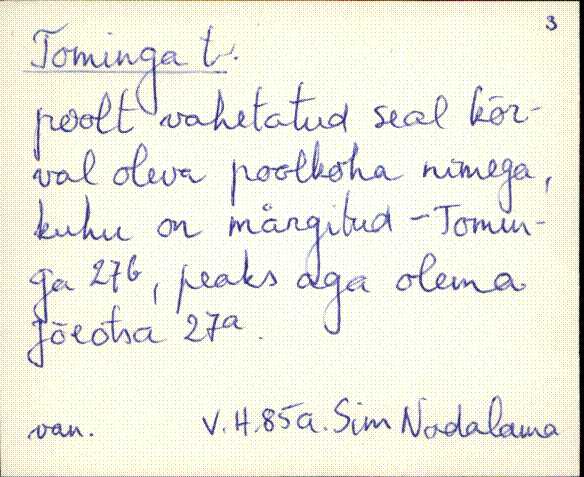 3
Tominga t.
poolt vahetatud seal kõr-
val oleva poolkoha nimega,
kuhu on märgitud - Tomin-
ga 27b, peaks aga olema
Jõeotsa 27a.
van. V.H. 85a. Sim Nadalama